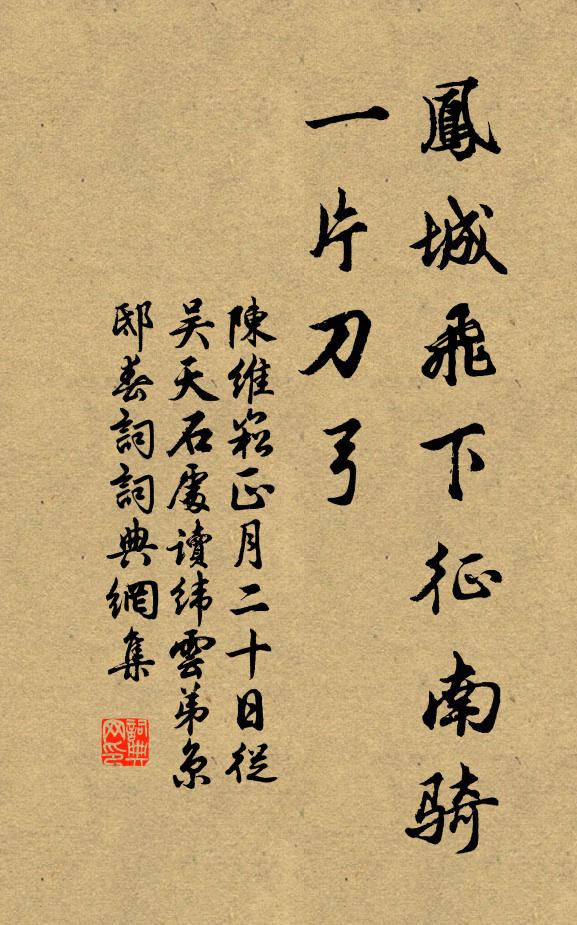 鳳城飛下征南騎
一片刀弓
陳維崧正月二十日從
吳天石處讀緯雲弟京
邸春詞詞典網集
詞典網印